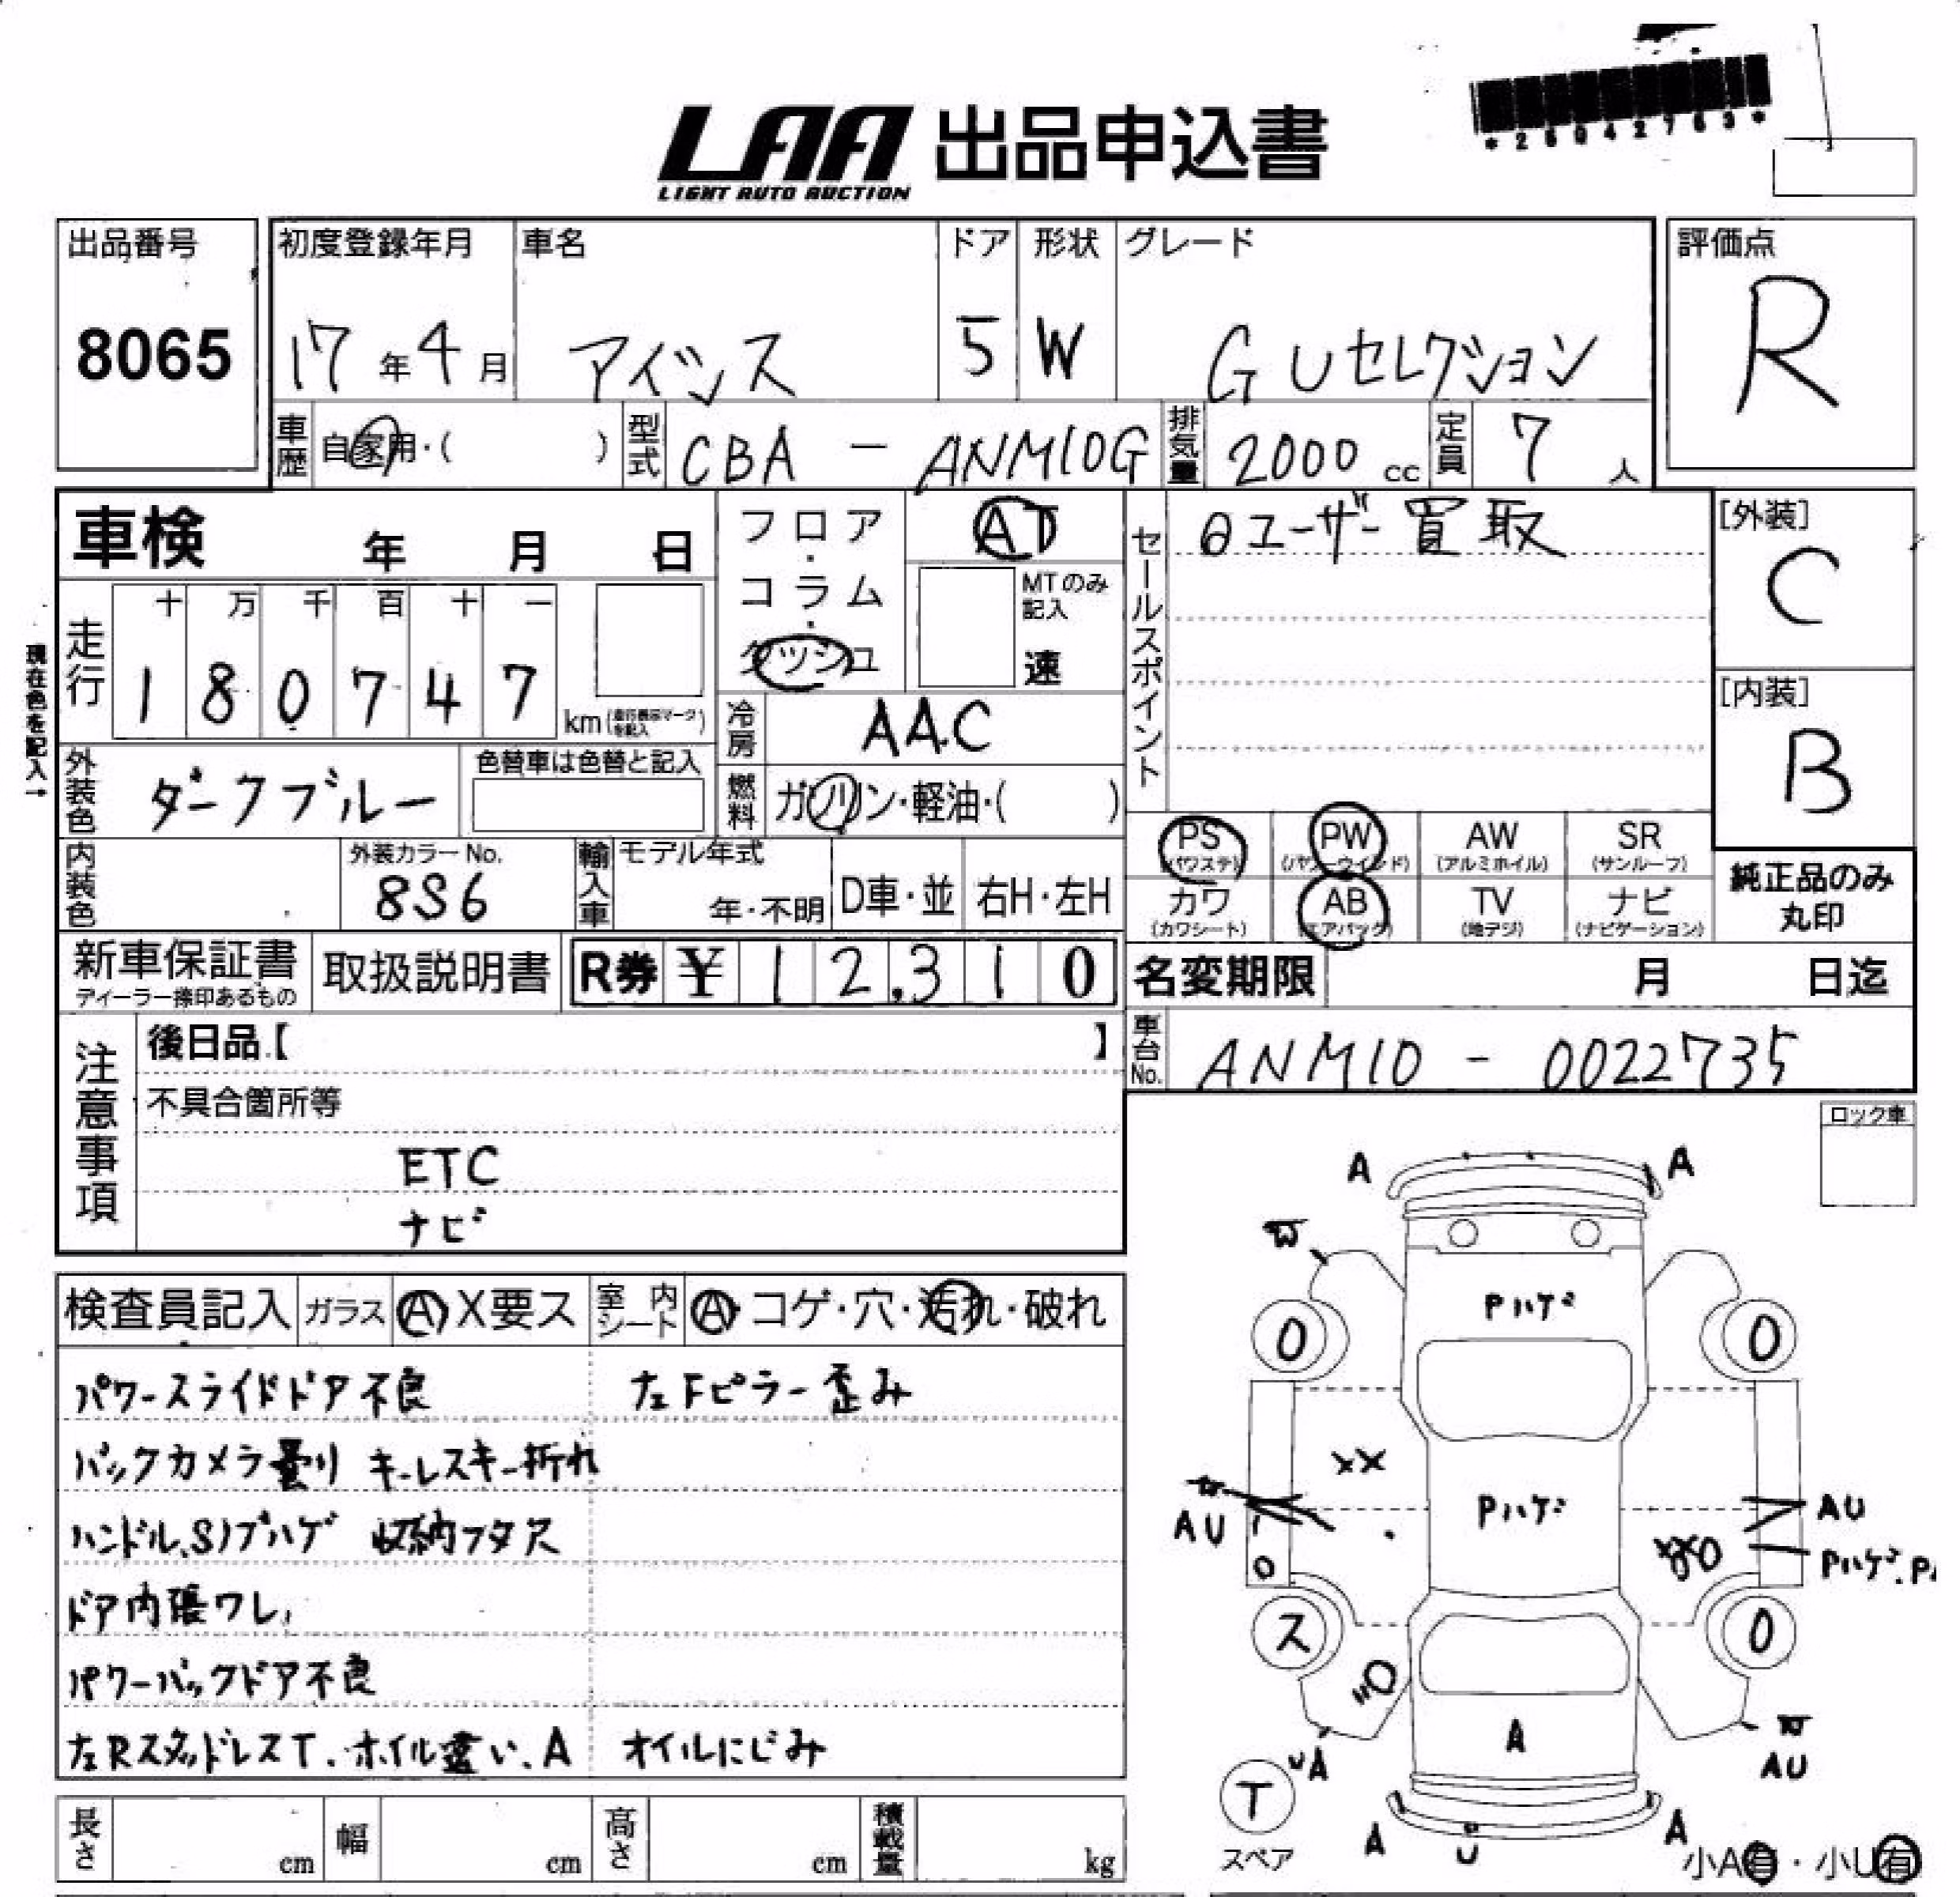 *26042763*
LAA 出品申込書
LIGHT AUTO AUCTION
出品番号 8065
初度登録年月 17年4月
車名 アイシス
ドア 5
形状 W
グレード G Uセレクション
評価点 R
車歴 自家用・( )
型式 CBA - ANM10G
排気量 2000 cc
定員 7人
車検 年 月 日
フロア・コラム・ダッシュ
AT
MTのみ記入
速
セールスポイント
①ユーザー買取
[外装] C
[内装] B
現在色を記入→
走行
十 万 千 百 十 一
1 8 0 7 4 7 km
冷房 AAC
外装色 ダークブルー
色替車は色替と記入
燃料 ガソリン・軽油・( )
PS (パワステ)
PW (パワーウインド)
AW (アルミホイル)
SR (サンルーフ)
カワ (カワシート)
AB (エアバック)
TV (地デジ)
ナビ (ナビゲーション)
純正品のみ
丸印
内装色
外装カラーNo. 8S6
輸入車 モデル年式
年・不明
D車・並
右H・左H
新車保証書
ディーラー捺印あるもの
取扱説明書
R券 ¥12,310
名変期限 月 日迄
車台No. ANM10 - 0022735
注意事項
後日品【 】
不具合箇所等
ETC
ナビ
ロック車
検査員記入 ガラス A X要ス
室内シート A・コゲ・穴・汚れ・破れ
パワースライドドア不良
左Fピラー歪み
バックカメラ曇り キーレスキー折れ
ハンドル、Sノブハゲ 収納フタ欠
ドア内張ワレ
パワーバックドア不良
左RスタッドレスT、ホイル違い、A
オイルにじみ
A A
W
Pハゲ
O O
XX
Pハゲ
AU
AU
Pハゲ.P
O
ス O
W
A
UA
AU
T
スペア
A U A
小A有・小U有
長さ cm
幅 cm
高さ cm
積載量 kg